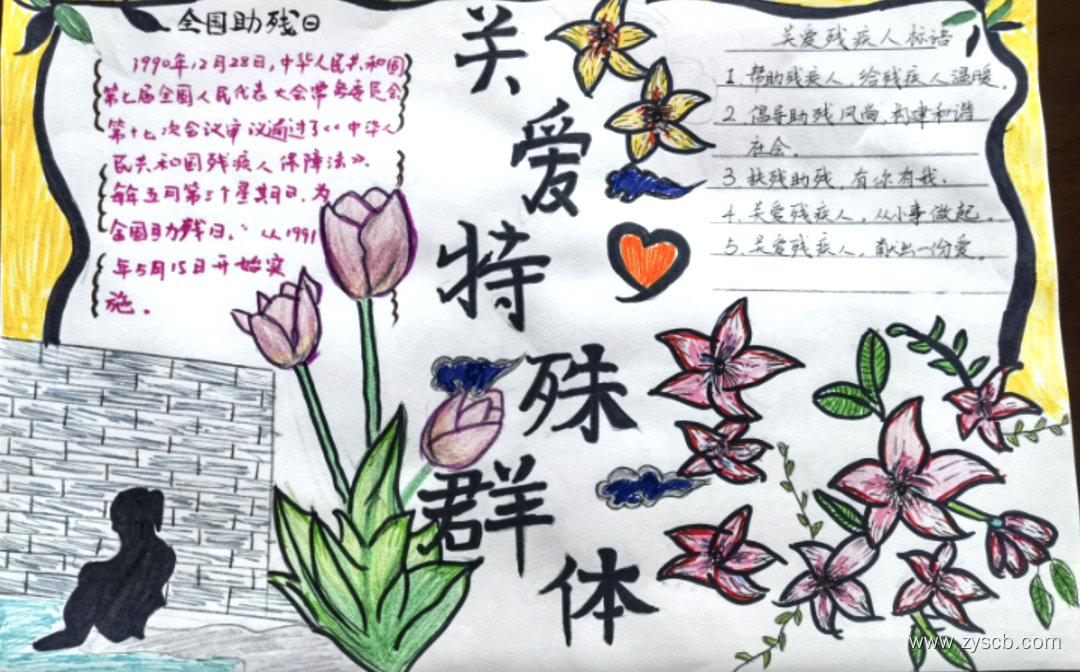 全国助残日
1990年12月28日，中华人民共和国
第七届全国人民代表大会常务委员会
第十七次会议审议通过了《中华人
民共和国残疾人保障法》。
每年五月第三个星期日，为
全国助残日。从1991
年5月15日开始实
施。
关爱特殊群体
关爱残疾人标语
1. 帮助残疾人，给残疾人温暖。
2. 倡导助残风尚，构建和谐
社会。
3. 扶残助残，有你有我。
4. 关爱残疾人，从小事做起。
5. 关爱残疾人，献出一份爱。
www.zyscb.com